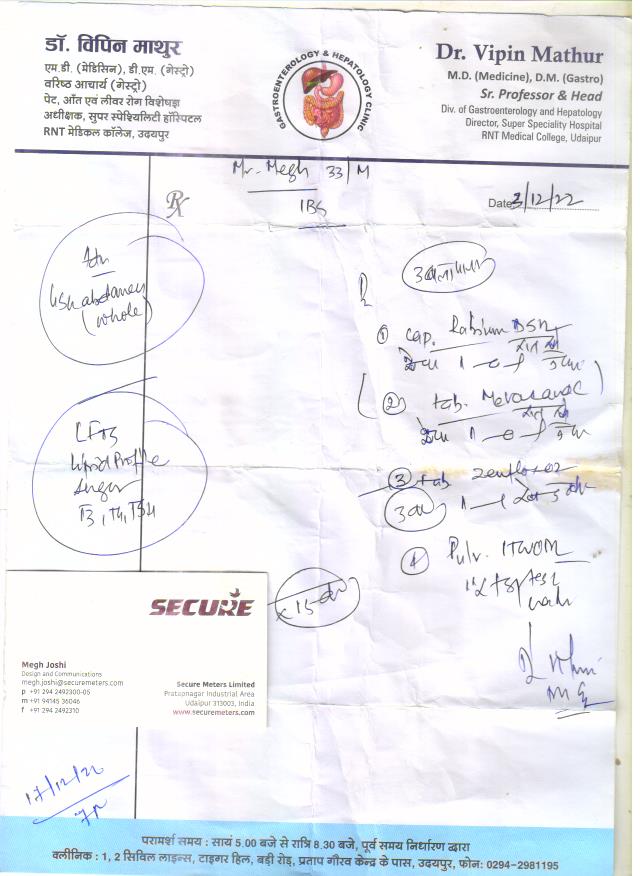 डॉ. विपिन माथुर
एम.डी. (मेडिसिन), डी.एम. (गेस्ट्रो)
वरिष्ठ आचार्य (गेस्ट्रो)
पेट, आँत एवं लीवर रोग विशेषज्ञ
अधीक्षक, सुपर स्पेशियलिटी हॉस्पिटल
RNT मेडिकल कॉलेज, उदयपुर
GASTROENTEROLOGY & HEPATOLOGY CLINIC
Dr. Vipin Mathur
M.D. (Medicine), D.M. (Gastro)
Sr. Professor & Head
Div. of Gastroenterology and Hepatology
Director, Super Speciality Hospital
RNT Medical College, Udaipur
Mr. Megh 33/M
IBS
Rx
Date 3/12/22
USG abdomen
(whole)
LFTs
Lipid Profile
Sugar
T3, T4, TSH
① Cap. Rabium DSR
1-0-1
② tab.
1-0-1
③ tab
1-1
④ Pulv.
x 15
SECURE
Megh Joshi
Design and Communications
megh.joshi@securemeters.com
p +91 294 2492300-05
m +91 94145 36046
f +91 294 2492310
Secure Meters Limited
Pratapnagar Industrial Area
Udaipur 313003, India
www.securemeters.com
17/12/22
परामर्श समय : सायं 5.00 बजे से रात्रि 8.30 बजे, पूर्व समय निर्धारण द्वारा
क्लीनिक : 1, 2 सिविल लाइन्स, टाइगर हिल, बड़ी रोड़, प्रताप गौरव केन्द्र के पास, उदयपुर, फोन: 0294-2981195